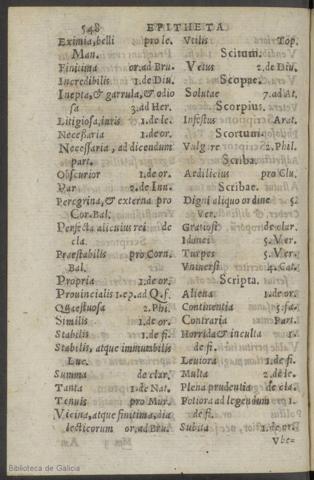 548 EPITHETA
Eximia, belli pro le.
Man.
Finitima or.ad Bru.
Incredibilis 1.de Diu.
Inepta, & garrula, & odio
sa 3.ad Her.
Litigiosa, iuris 1.de le.
Necessaria 1.de or.
Necessaria, ad dicendum
part.
Obscurior 1.de or.
Par 2.de Inu.
Peregrina, & externa pro
Cor.Bal.
Perfecta alicuius rei de
cla.
Praestabilis pro Corn.
Bal.
Propria 1.de or.
Prouincialis 1.ep.ad Q.f.
Quaestuosa 2.Phi.
Similis 1.de or.
Stabilis 1.de fi.
Stabilis, atque immutabilis
Luc.
Summa de clar.
Tanta 1.de Nat.
Tenuis pro Mur.
Vicina, atque finitima, dia
lecticorum or.ad Bru.
Vtilis Top.
Scitum.
Vetus 2.de Diu.
Scopae.
Solutae 7.ad At.
Scorpius.
Infestus Arat.
Scortum.
Vulgare 2.Phil.
Scriba.
Aedilicius pro Clu.
Scribae.
Digni aliquo ordine 5.
Ver.
Gratiosi de clar.
Idonei 5.Ver.
Turpes 5.Ver.
Vniuersi 4.Cat.
Scripta.
Aliena 1.de or.
Continentia 5.fa.
Contraria Part.
Horrida & inculta 1.
de fi.
Leuiora 1.de fi.
Multa 2.de le.
Plena prudentia de cla.
Potiora ad legendum 1.
de fi.
Subita 1.de or.
Vbe-
Biblioteca de Galicia